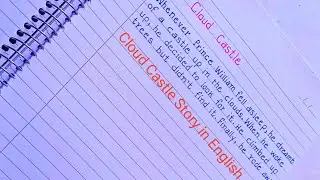 Cloud Castle
Whenever Prince William fell asleep, he dreamt
of a castle up in the clouds. When he woke
up, he decided to look for it. He climbed up
trees but didn't find it. Finally, he rose
Cloud Castle Story in English